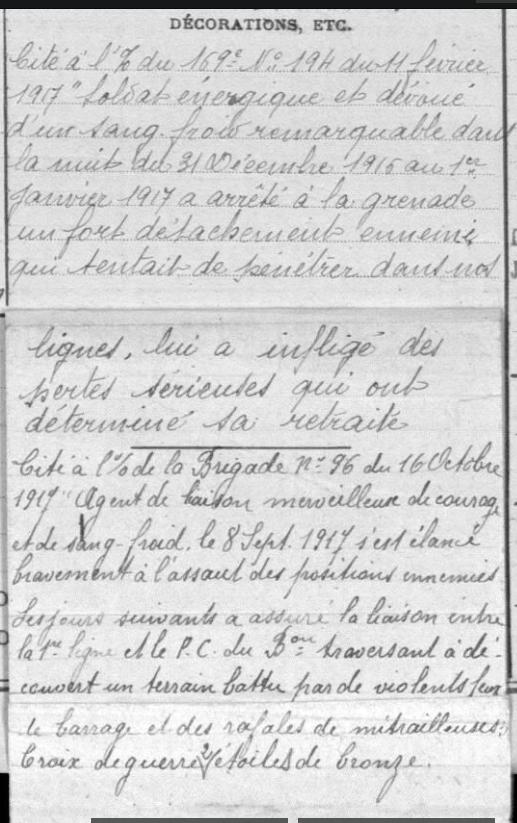 DÉCORATIONS, ETC.
Cité à l'% du 169e No 194 du 11 février
1917 "Soldat énergique et dévoué
d'un sang-froid remarquable dans
la nuit du 31 Décembre 1916 au 1er
Janvier 1917 a arrêté à la grenade
un fort détachement ennemi
qui tentait de pénétrer dans nos
lignes, lui a infligé des
pertes sérieuses qui ont
déterminé sa retraite
Cité à l'% de la Brigade No 96 du 16 Octobre
1917 "Agent de liaison merveilleux de courage
et de sang-froid, le 8 Sept. 1917 s'est élancé
bravement à l'assaut des positions ennemies
Les jours suivants a assuré la liaison entre
la 1re ligne et le P.C. du Bon traversant à dé-
couvert un terrain battu par de violents feux
de barrage et des rafales de mitrailleuses"
Croix de guerre 2 étoiles de bronze.